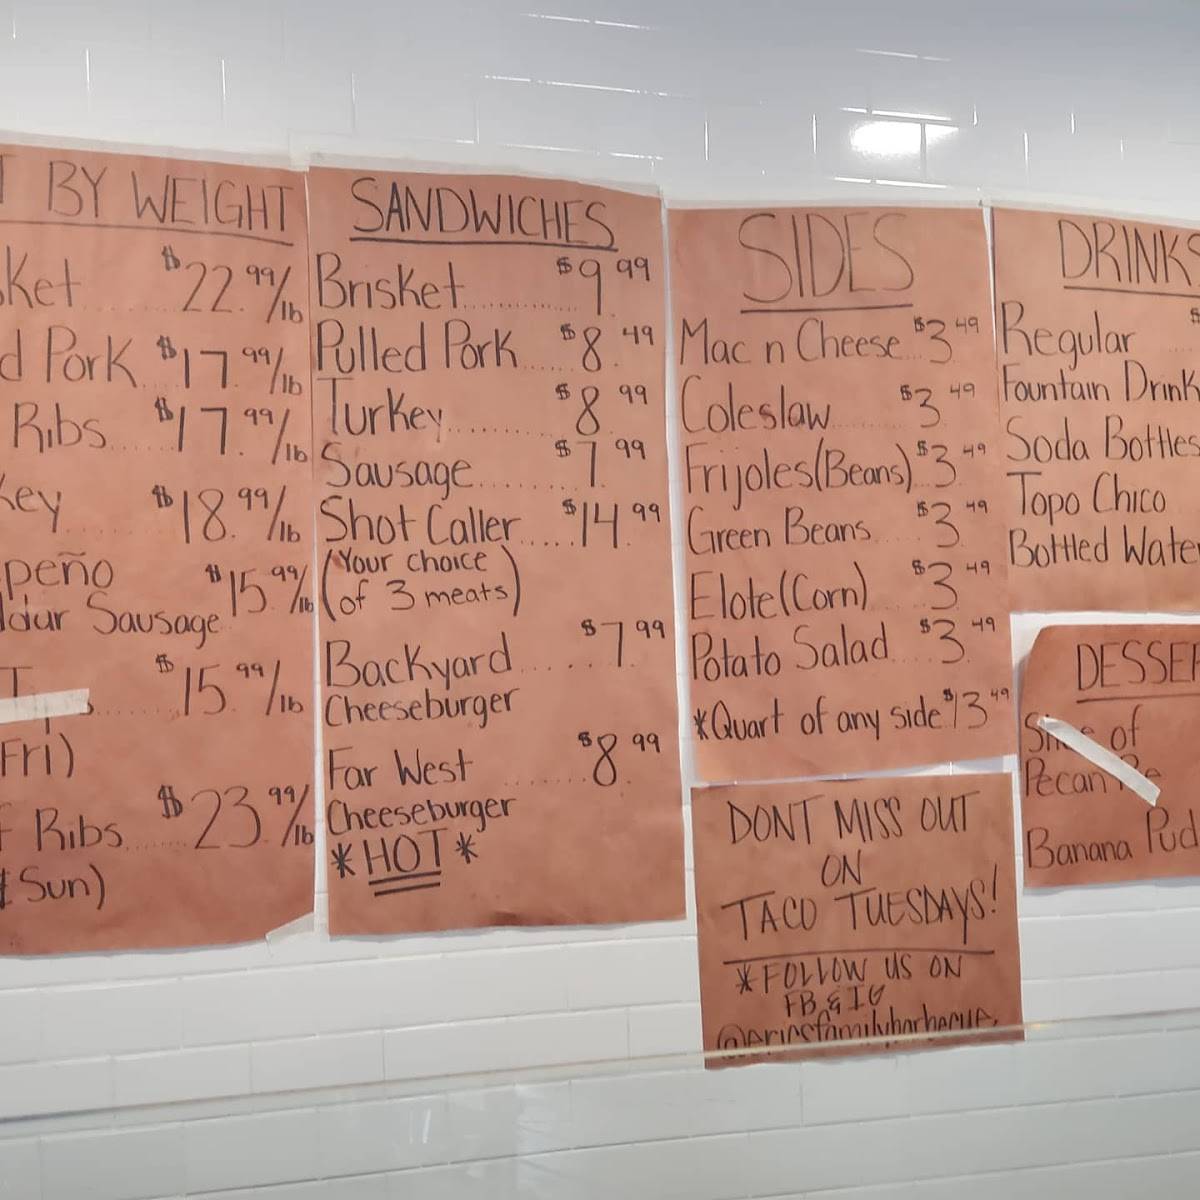 BY WEIGHT
ket ........ $22.99/lb
d Pork .... $17.99/lb
Ribs ...... $17.99/lb
key ....... $18.99/lb
peño $15.99/lb
ddar Sausage
T
.......... $15.99/lb
Fri)
f Ribs ...... $23.99/lb
Sun)
SANDWICHES
Brisket ............ $9.99
Pulled Pork ...... $8.49
Turkey .......... $8.99
Sausage ......... $7.99
Shot Caller ..... $14.99
(Your choice
of 3 meats)
Backyard ...... $7.99
Cheeseburger
Far West ....... $8.99
Cheeseburger
*HOT*
SIDES
Mac n Cheese ... $3.49
Coleslaw ........ $3.49
Frijoles(Beans) $3.49
Green Beans .... $3.49
Elote(Corn) .... $3.49
Potato Salad .... $3.49
*Quart of any side $13.49
DONT MISS OUT
ON
TACO TUESDAYS!
*FOLLOW US ON
FB & IG
@ericsfamilybarbecue
DRINKS
Regular .... $
Fountain Drink
Soda Bottles
Topo Chico
Bottled Water
DESSER
Slice of
Pecan Pie
Banana Pud